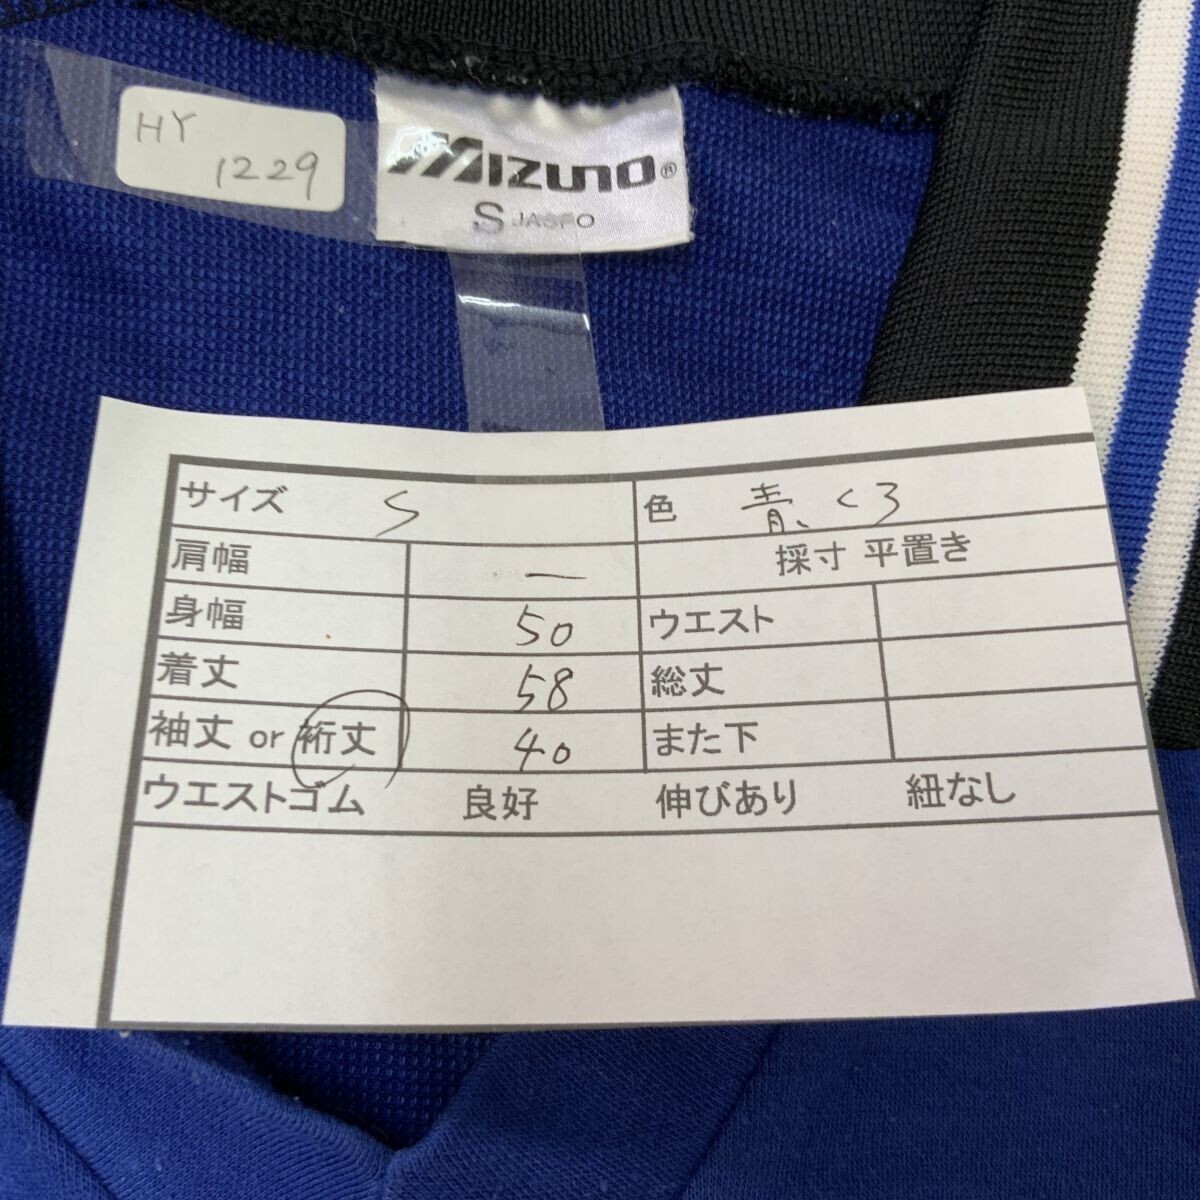 HY
1229
MIZUNO®
S JASPO
サイズ S
色 青、くろ
肩幅 ー
採寸 平置き
身幅 50
ウエスト
着丈 58
総丈
袖丈 or 裄丈 40
また下
ウエストゴム 良好 伸びあり 紐なし